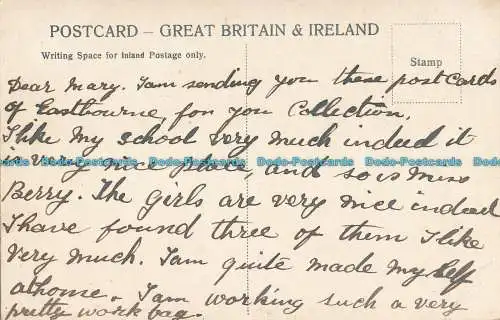 POSTCARD – GREAT BRITAIN & IRELAND
Writing Space for Inland Postage only.
Stamp
Dear Mary. I am sending you these post cards
of Eastbourne, for you Collection.
I like my school very much indeed it
is very nice place, and so is Miss
Dodo-Postcards Dodo-Postcards Dodo-Postcards Dodo-Postcards
Berry. The girls are very nice indeed
I have found three of them I like
very much. I am quite made my self
at home. I am working such a very
pretty work bag.